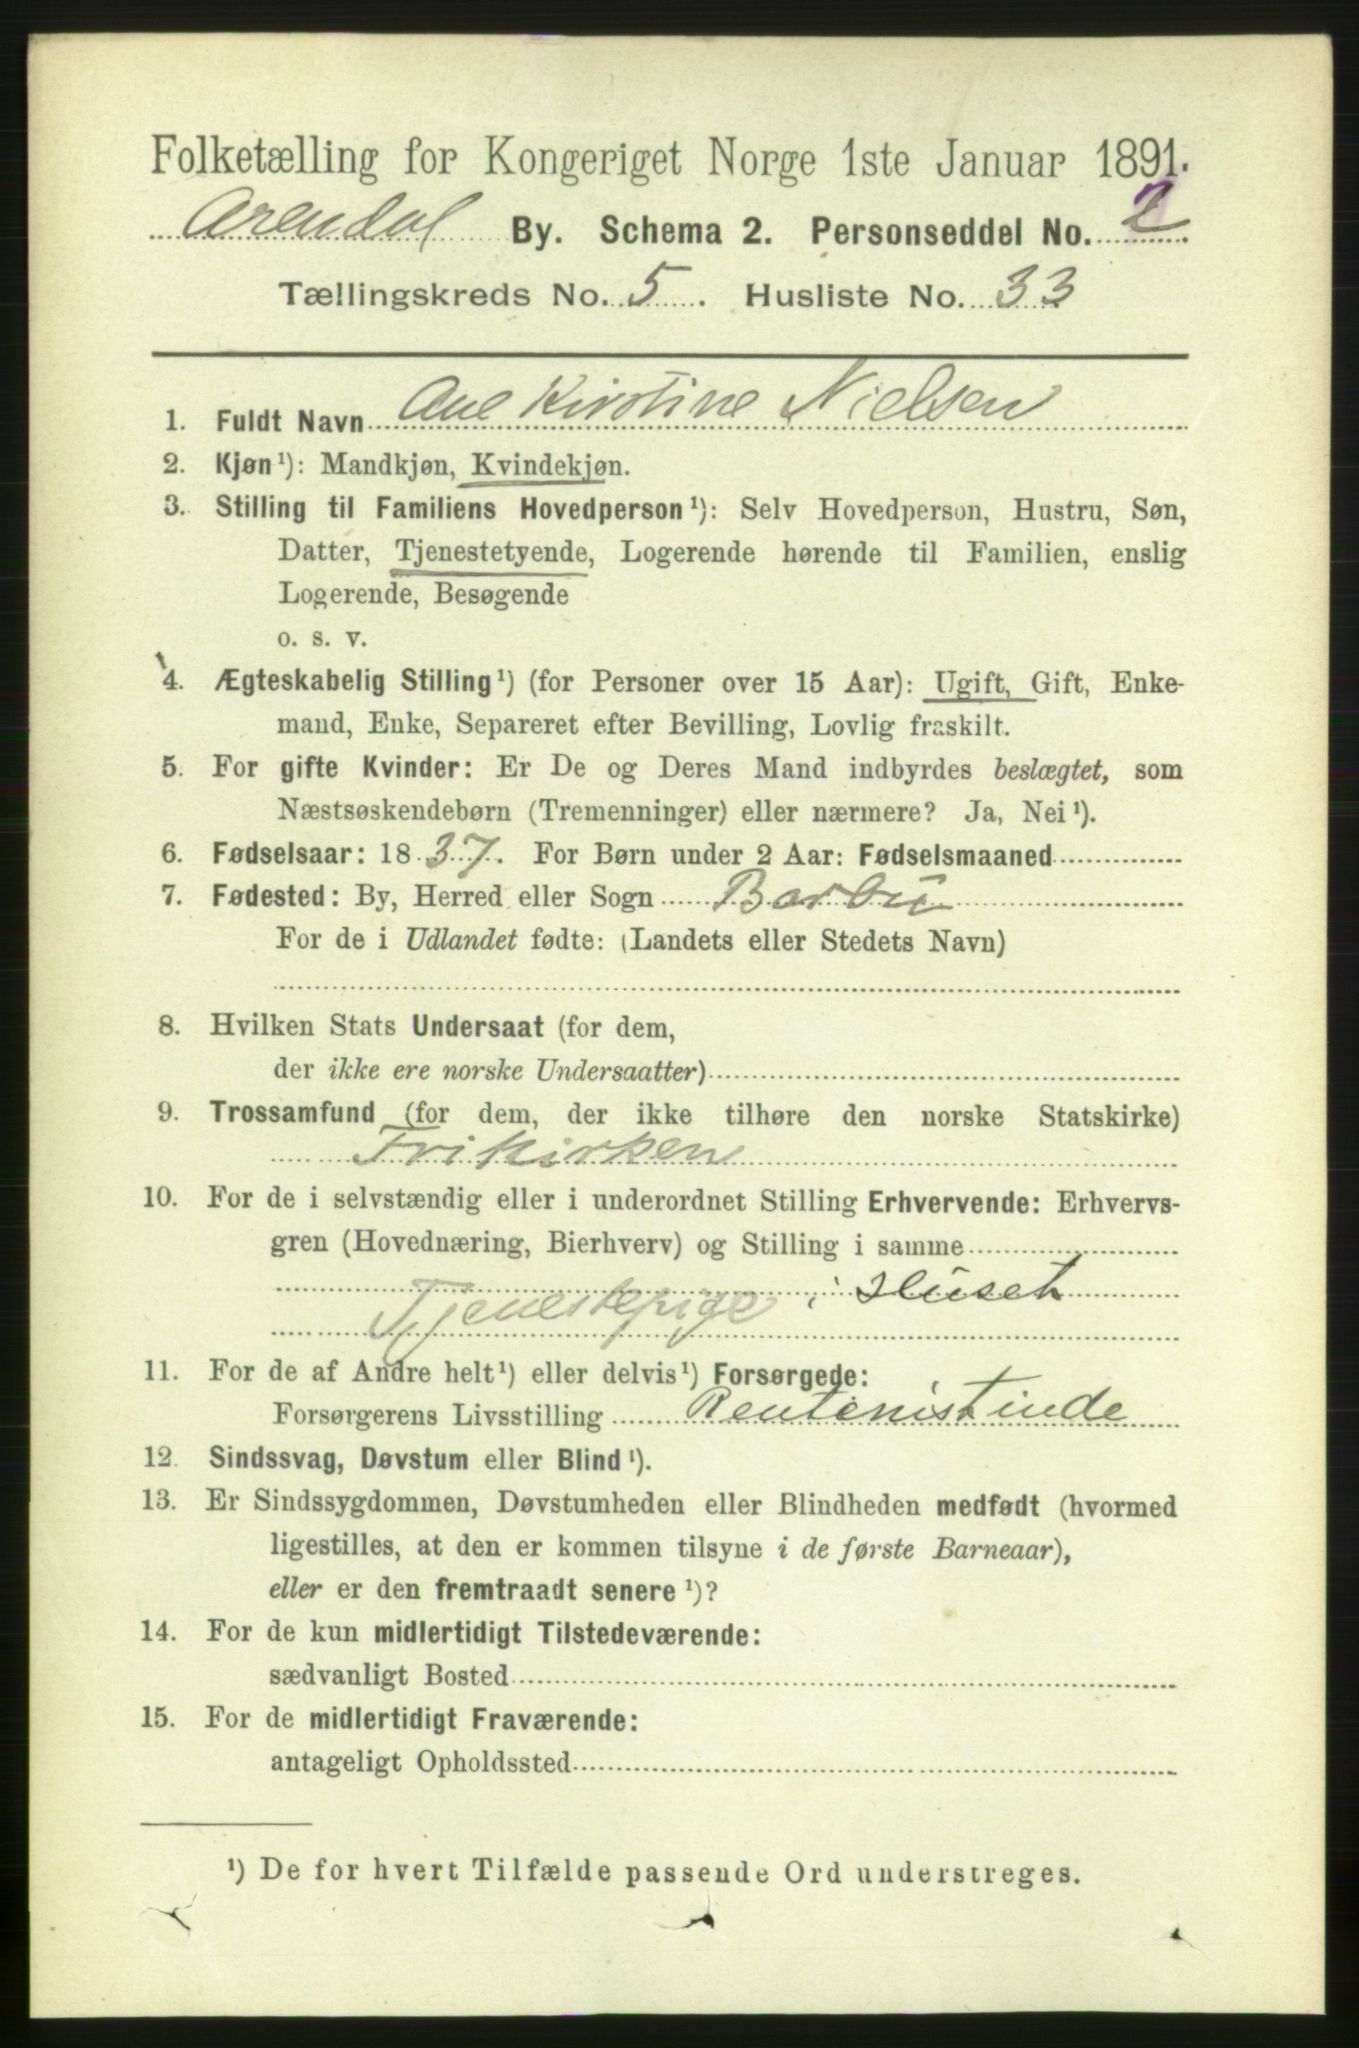 Folketælling for Kongeriget Norge 1ste Januar 1891.
Arendal By. Schema 2. Personseddel No. 2
Tællingskreds No. 5. Husliste No. 33
1. Fuldt Navn Ane Kirstine Nielsen
2. Kjøn¹): Mandkjøn, Kvindekjøn.
3. Stilling til Familiens Hovedperson¹): Selv Hovedperson, Hustru, Søn,
Datter, Tjenestetyende, Logerende hørende til Familien, enslig
Logerende, Besøgende
o. s. v.
4. Ægteskabelig Stilling¹) (for Personer over 15 Aar): Ugift, Gift, Enke-
mand, Enke, Separeret efter Bevilling, Lovlig fraskilt.
5. For gifte Kvinder: Er De og Deres Mand indbyrdes beslægtet, som
Næstsøskendebørn (Tremenninger) eller nærmere? Ja, Nei¹).
6. Fødselsaar: 1837. For Børn under 2 Aar: Fødselsmaaned
7. Fødested: By, Herred eller Sogn Barbu
For de i Udlandet fødte: (Landets eller Stedets Navn)
8. Hvilken Stats Undersaat (for dem,
der ikke ere norske Undersaatter)
9. Trossamfund (for dem, der ikke tilhøre den norske Statskirke)
Frikirken
10. For de i selvstændig eller i underordnet Stilling Erhvervende: Erhvervs-
gren (Hovednæring, Bierhverv) og Stilling i samme
Tjenestepige i Huset
11. For de af Andre helt¹) eller delvis¹) Forsørgede:
Forsørgerens Livsstilling Rentenistinde
12. Sindssvag, Døvstum eller Blind¹).
13. Er Sindssygdommen, Døvstumheden eller Blindheden medfødt (hvormed
ligestilles, at den er kommen tilsyne i de første Barneaar),
eller er den fremtraadt senere¹)?
14. For de kun midlertidigt Tilstedeværende:
sædvanligt Bosted
15. For de midlertidigt Fraværende:
antageligt Opholdssted
¹) De for hvert Tilfælde passende Ord understreges.